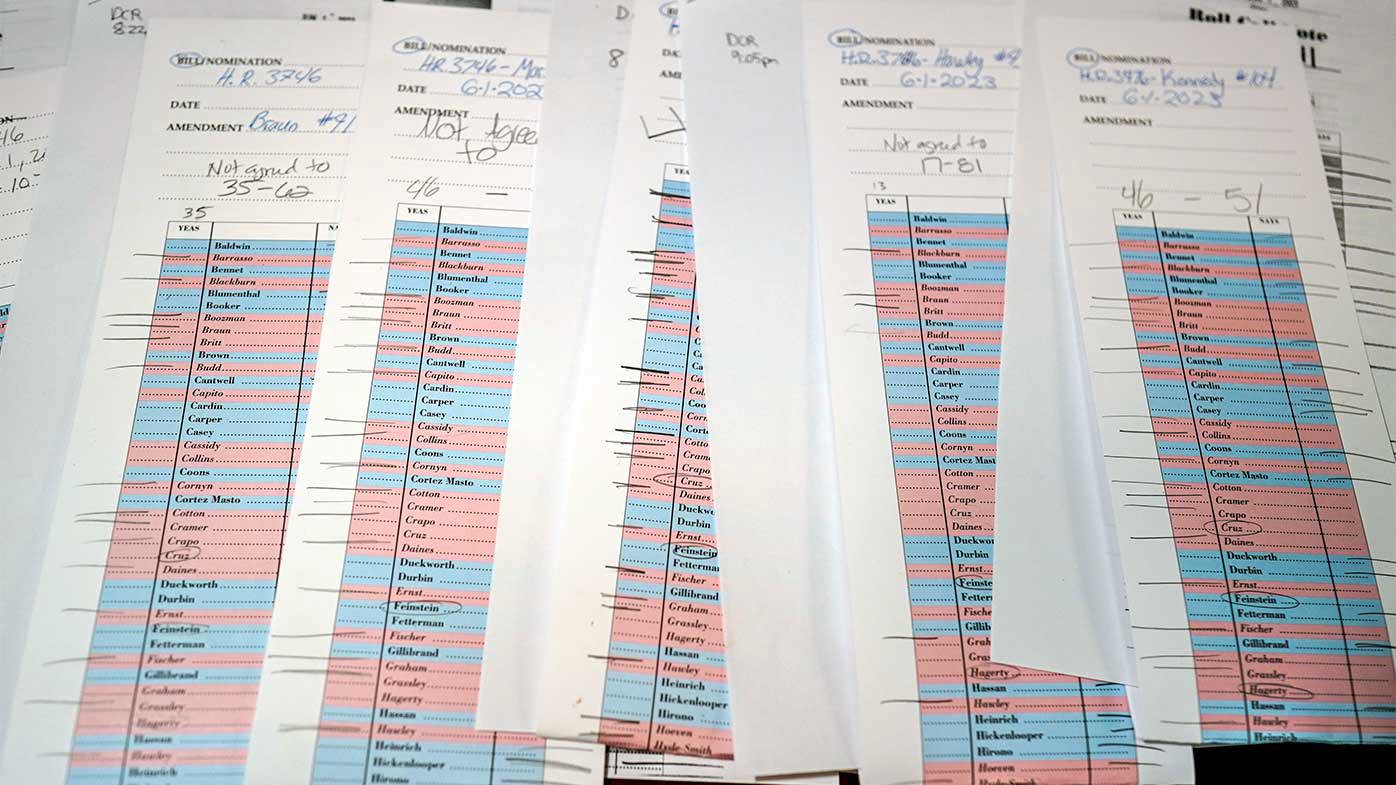 DCR
8:22
BILL/NOMINATION
H.R. 3746
DATE
AMENDMENT Braun #91
Not agreed to
35-62
35
YEAS
Baldwin
Barrasso
Bennet
Blackburn
Blumenthal
Booker
Boozman
Braun
Britt
Brown
Budd
Cantwell
Capito
Cardin
Carper
Casey
Cassidy
Collins
Coons
Cornyn
Cortez Masto
Cotton
Cramer
Crapo
Cruz
Daines
Duckworth
Durbin
Ernst
Feinstein
Fetterman
Fischer
Gillibrand
Graham
Grassley
Hagerty
Hassan
Hawley
Heinrich
BILL/NOMINATION
HR 3746-
DATE 6-1-202
AMENDMENT
Not Agree
to
46 —
YEAS
Baldwin
Barrasso
Bennet
Blackburn
Blumenthal
Booker
Boozman
Braun
Britt
Brown
Budd
Cantwell
Capito
Cardin
Carper
Casey
Cassidy
Collins
Coons
Cornyn
Cortez Masto
Cotton
Cramer
Crapo
Cruz
Daines
Duckworth
Durbin
Ernst
Feinstein
Fetterman
Fischer
Gillibrand
Graham
Grassley
Hagerty
Hassan
Hawley
Heinrich
Hickenlooper
Hirono
D
8
Cruz
Daines
Durbin
Ernst
Feinstein
Fischer
Gillibrand
Graham
Grassley
Hagerty
Hassan
Hawley
Heinrich
Hickenlooper
Hirono
Hoeven
Hyde-Smith
DCR
9:05pm
BILL/NOMINATION
H.R. 3746- Hawley #
DATE 6-1-2023
AMENDMENT
Not agreed to
17-81
13
YEAS
Baldwin
Barrasso
Bennet
Blackburn
Blumenthal
Booker
Boozman
Braun
Britt
Brown
Budd
Cantwell
Capito
Cardin
Carper
Casey
Cassidy
Collins
Coons
Cornyn
Cortez Mast
Cotton
Cramer
Crapo
Cruz
Daines
Duckwor
Durbin
Ernst
Feinste
Fetter
Fische
Gillib
Grah
Gras
Hagerty
Hassan
Hawley
Heinrich
Hickenlooper
Hirono
Hoeven
Hyde-Smith
BILL/NOMINATION
Kennedy #104
DATE 6-1-2023
AMENDMENT
46 - 51
YEAS NAYS
Baldwin
Barrasso
Bennet
Blackburn
Blumenthal
Booker
Boozman
Braun
Britt
Brown
Budd
Cantwell
Capito
Cardin
Carper
Casey
Cassidy
Collins
Coons
Cornyn
Cortez Masto
Cotton
Cramer
Crapo
Cruz
Daines
Duckworth
Durbin
Ernst
Feinstein
Fetterman
Fischer
Gillibrand
Graham
Grassley
Hagerty
Hassan
Hawley
Heinrich